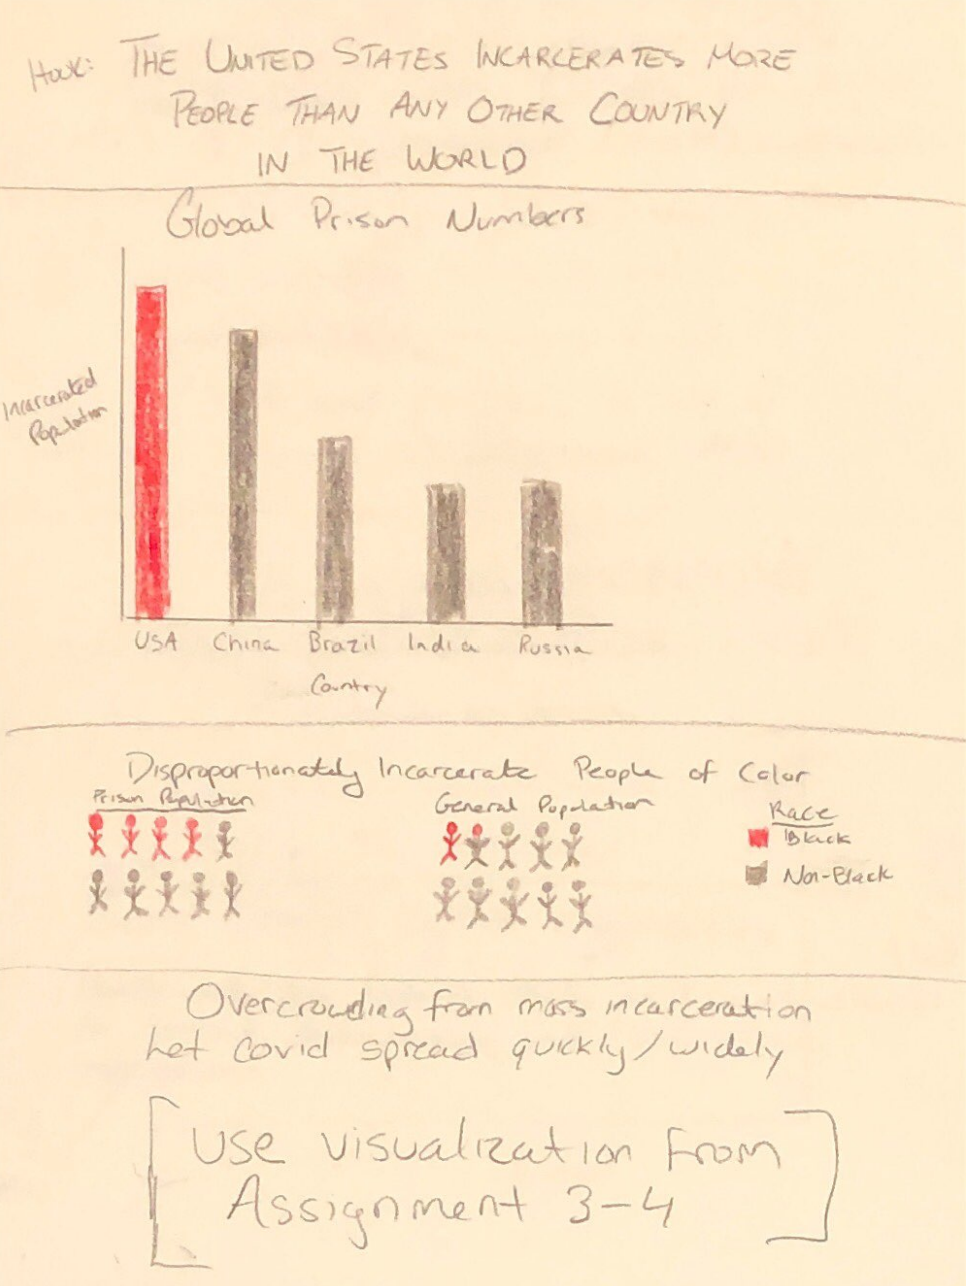 Hook: THE UNITED STATES INCARCERATES MORE
PEOPLE THAN ANY OTHER COUNTRY
IN THE WORLD
Global Prison Numbers
Incarcerated
Population
USA China Brazil India Russia
Country
Disproportionately Incarcerate People of Color
Prison Population
General Population
Race
Black
Non-Black
Overcrowding from mass incarceration
let covid spread quickly/widely
[Use visualization from
Assignment 3-4]